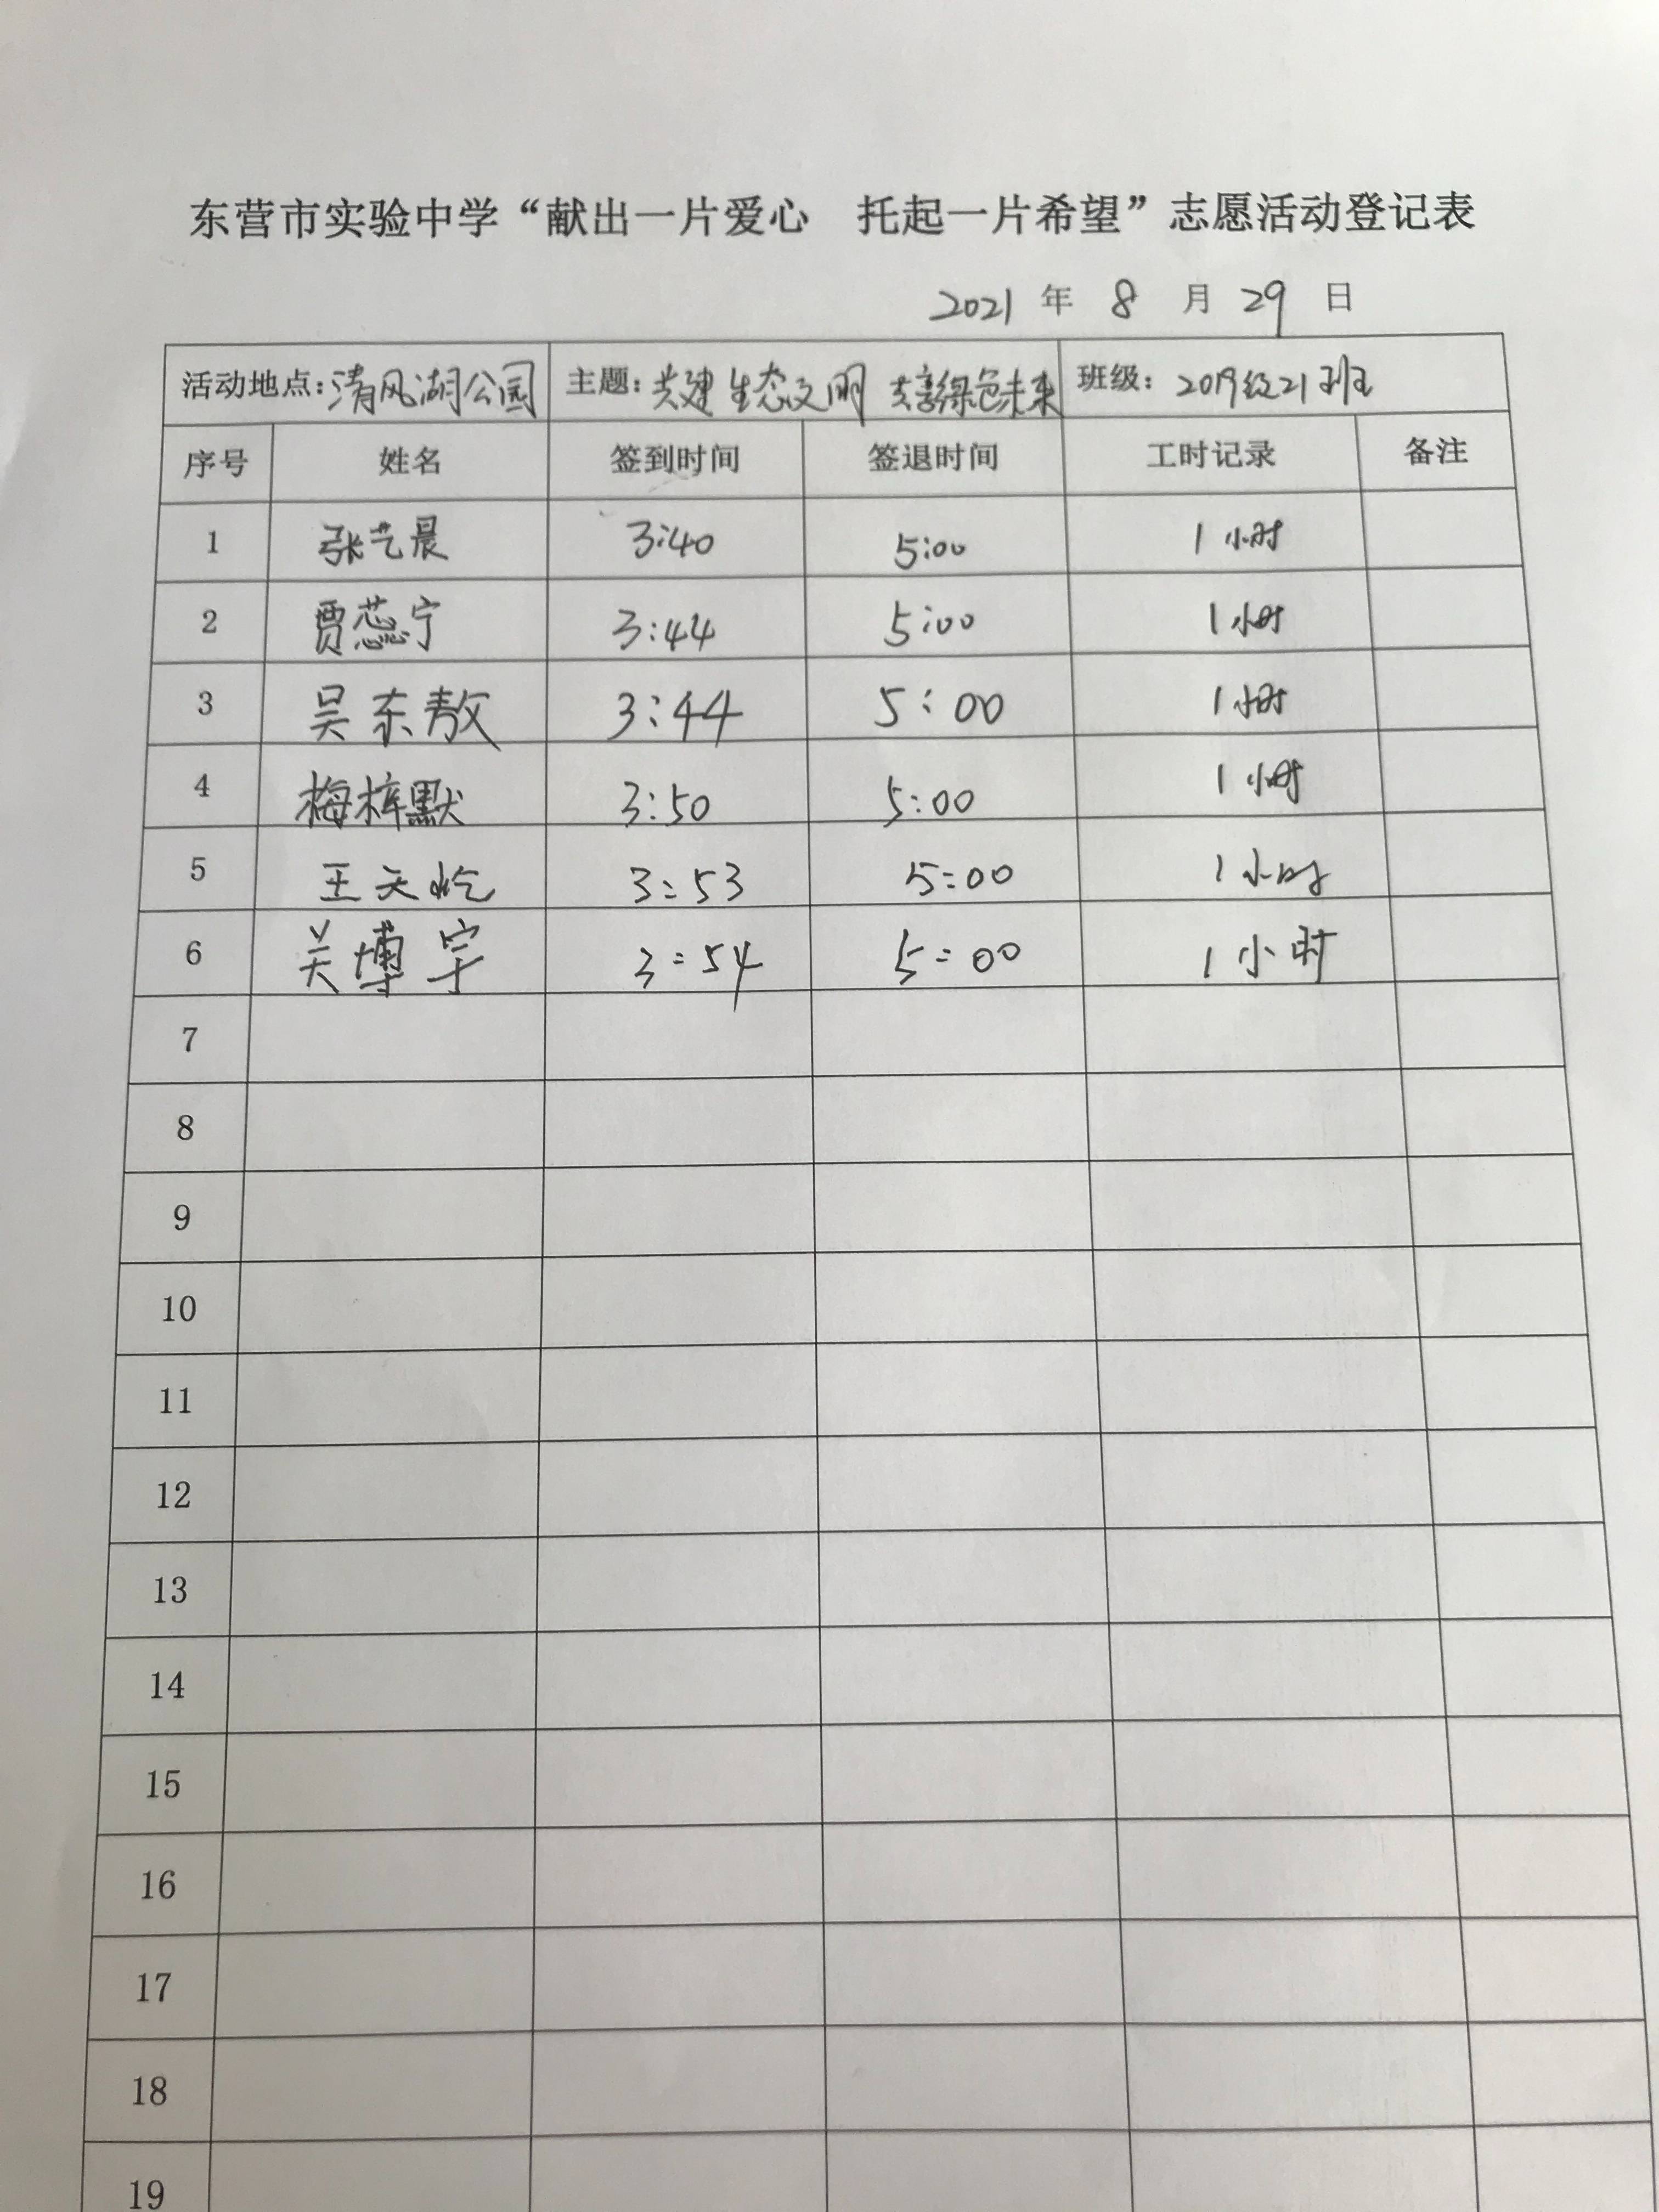 东营市实验中学“献出一片爱心 托起一片希望”志愿活动登记表
2021 年 8 月 29 日
活动地点：清风湖公园 主题：共建生态文明 共享绿色未来 班级：2019级21班
序号 姓名 签到时间 签退时间 工时记录 备注
1 张艺晨 3:40 5:00 1小时
2 贾蕊宁 3:44 5:00 1小时
3 吴东敖 3:44 5:00 1小时
4 梅梓默 3:50 5:00 1小时
5 王天屹 3:53 5:00 1小时
6 关博宇 3:54 5:00 1小时
7
8
9
10
11
12
13
14
15
16
17
18
19